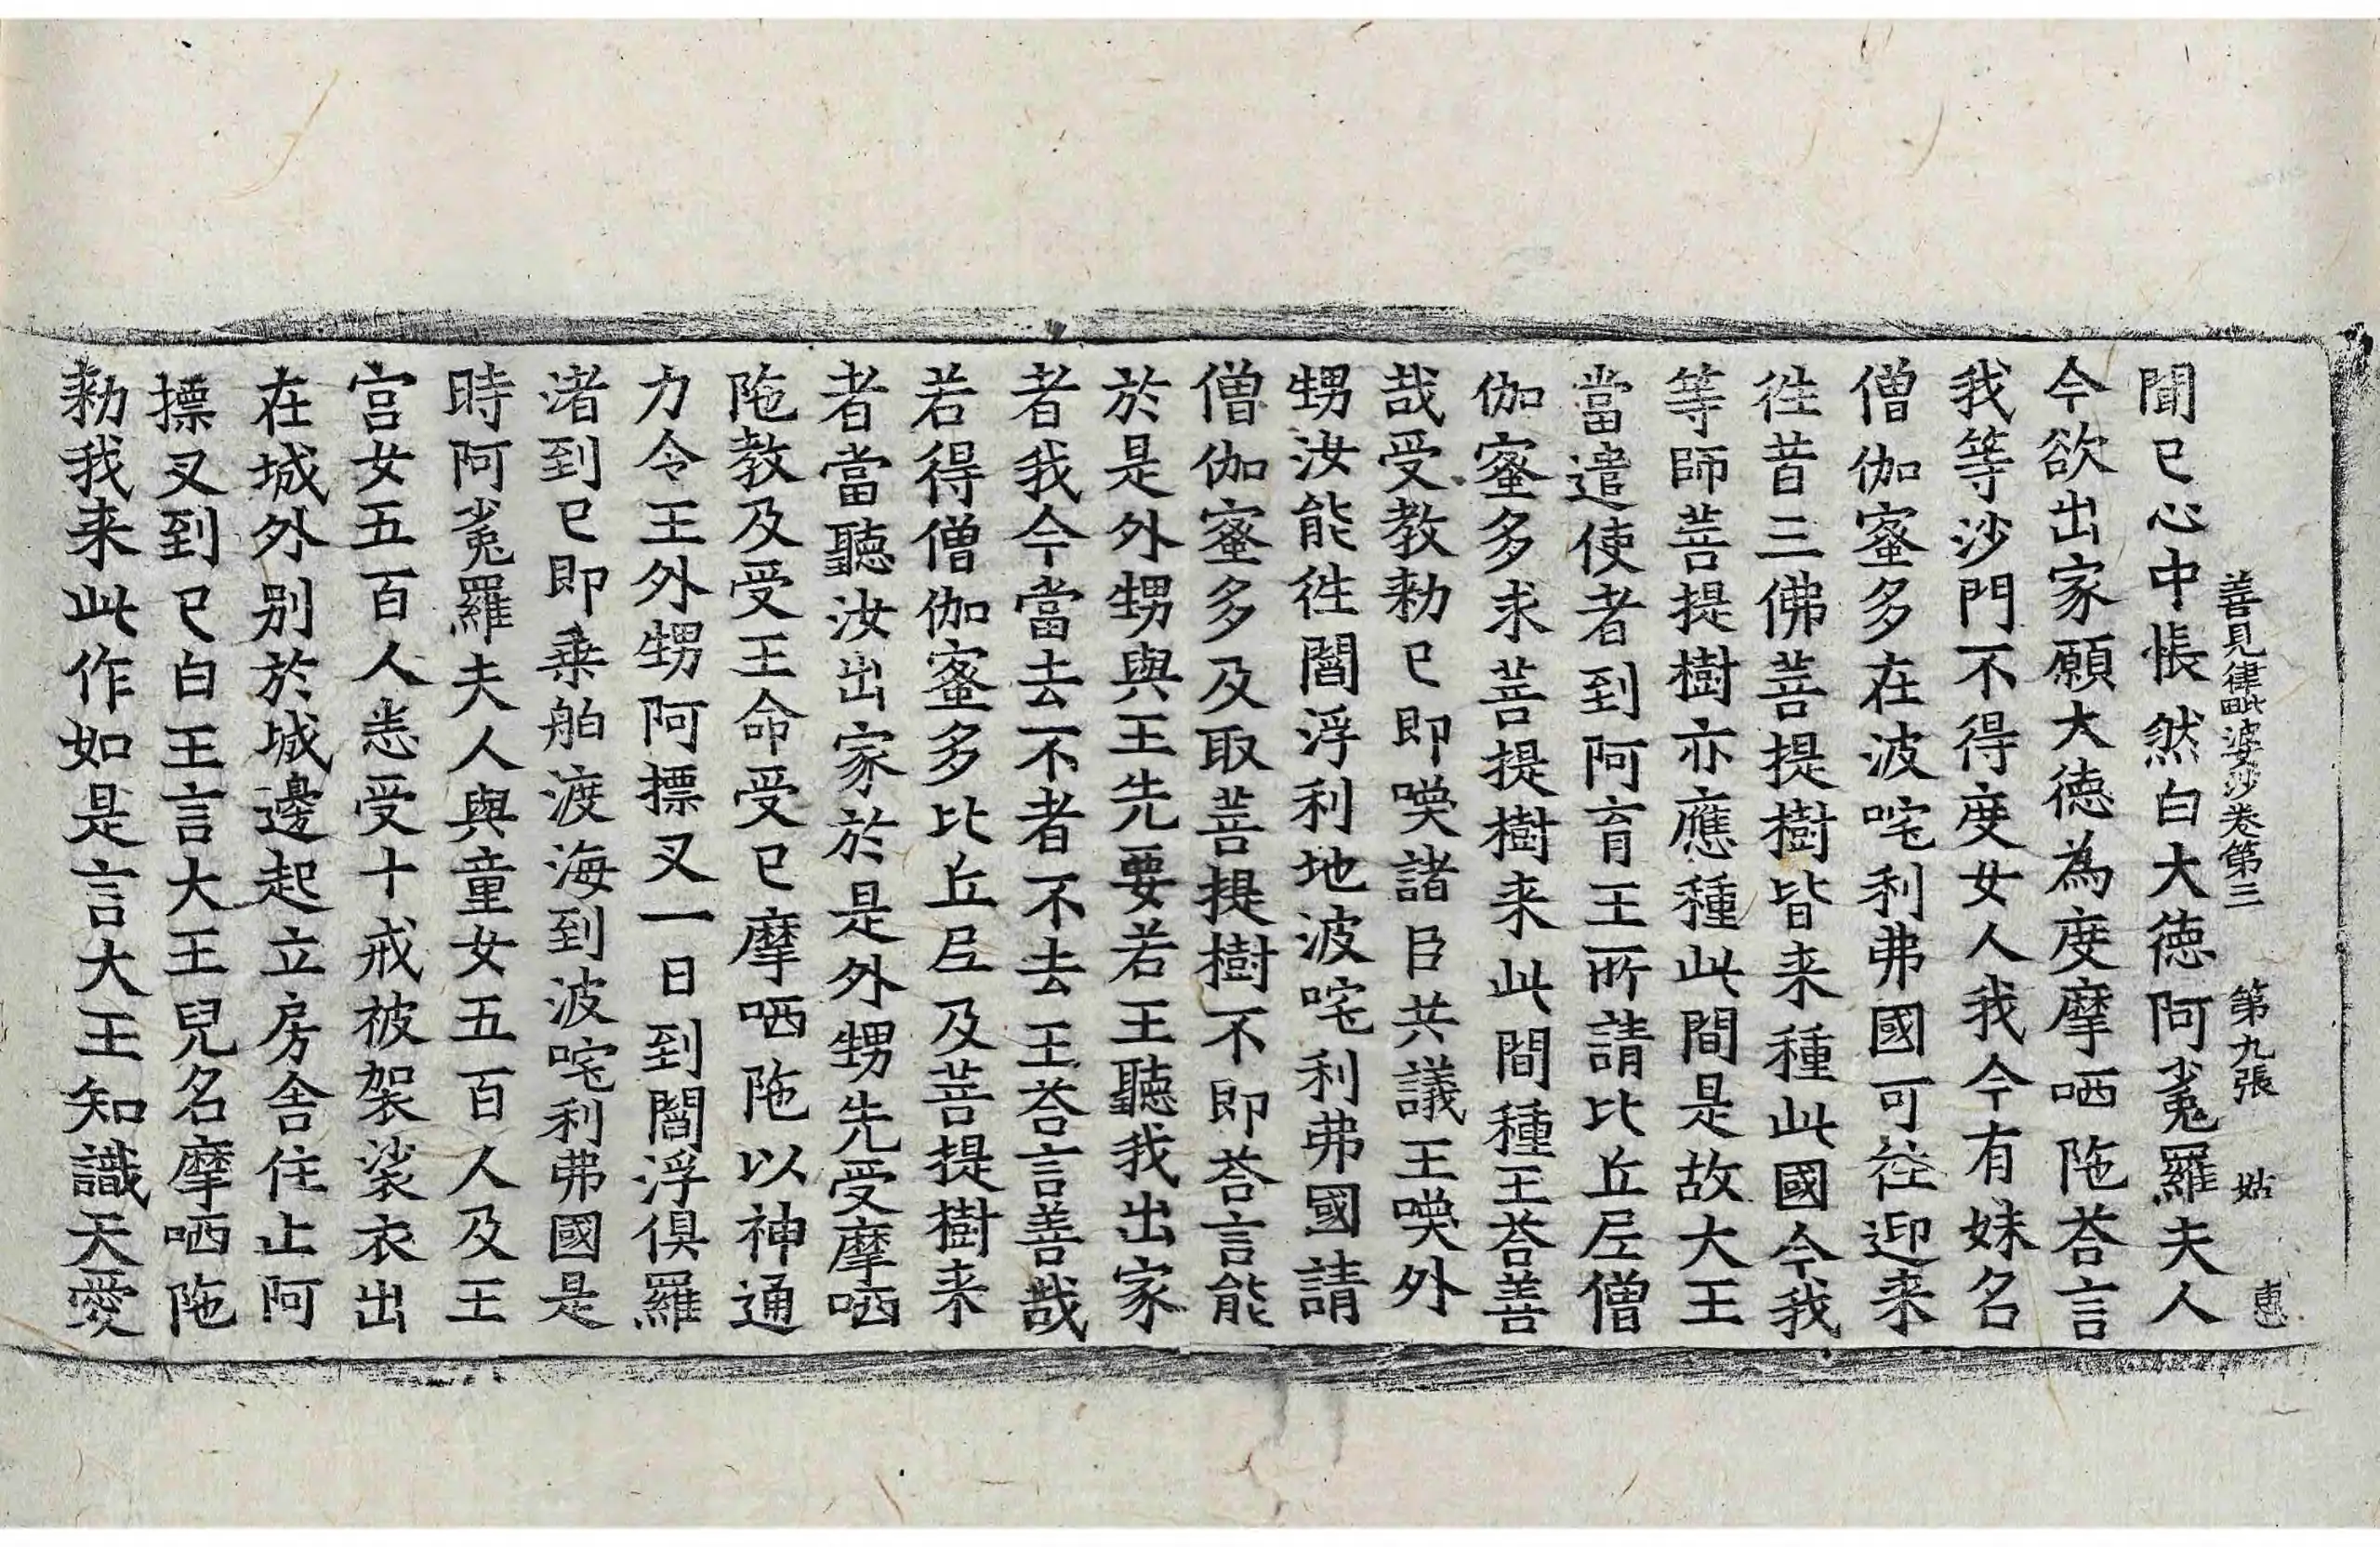 善見律毗婆沙卷第三　第九張　姑　惠
聞已心中悵然白大徳阿㝹羅夫人
今欲出家願大徳為度摩哂陁荅言
我等沙門不得度女人我今有妹名
僧伽蜜多在波咤利弗國可往迎来
徃昔三佛菩提樹皆来種此國今我
等師菩提樹亦應種此間是故大王
當遣使者到阿育王所請比丘尼僧
伽蜜多求菩提樹来此間種王荅善
哉受教勑已即喚諸臣共議王喚外
甥汝能徃閻浮利地波咤利弗國請
僧伽蜜多及取菩提樹不即荅言能
於是外甥與王先要若王聽我出家
者我今當去不者不去王荅言善哉
若得僧伽蜜多比丘尼及菩提樹来
者當聽汝出家於是外甥先受摩哂
陁教及受王命受已摩哂陁以神通
力令王外甥阿摽叉一日到閻浮俱羅
渚到已即乗舶渡海到波咤利弗國是
時阿㝹羅夫人與童女五百人及王
宮女五百人悉受十戒被袈裟衣出
在城外别於城邊起立房舎住止阿
摽叉到已白王言大王兒名摩哂陁
勑我来此作如是言大王知識天愛